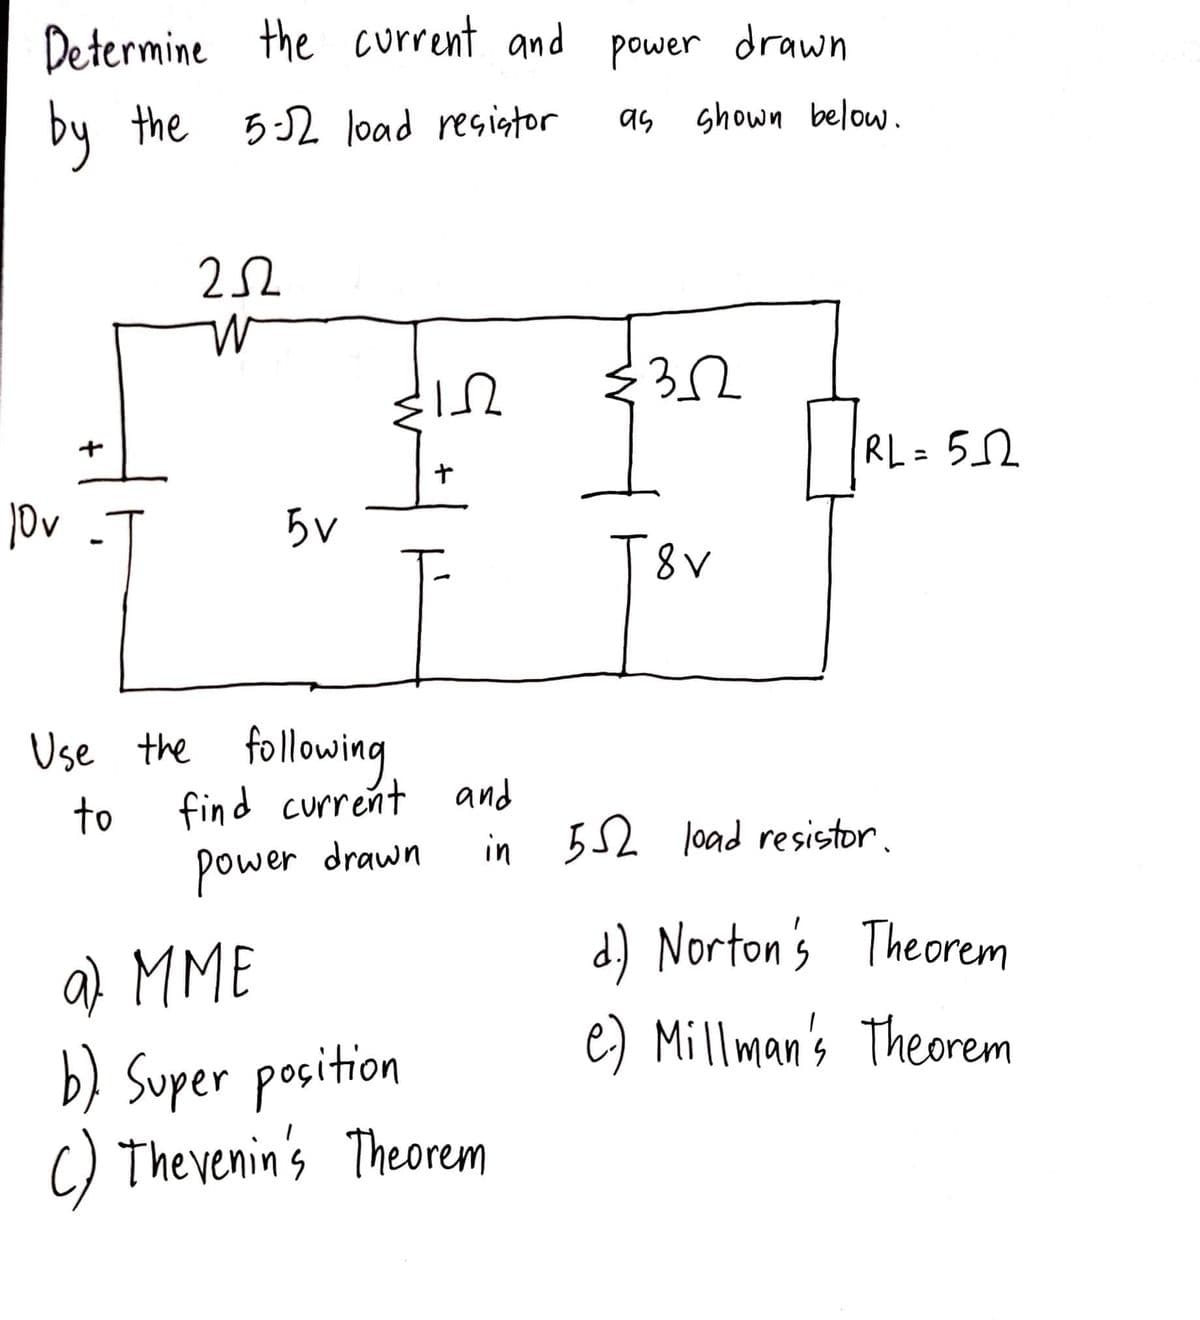 Determine the current and power drawn
by the 5-Ω load resistor as shown below.
2Ω
1Ω
3Ω
RL = 5Ω
+
+
10v
-
5v
-
8v
Use the following
to find current and
power drawn in 5Ω load resistor.
a) MME
b) Super position
c) Thevenin's Theorem
d.) Norton's Theorem
e.) Millman's Theorem